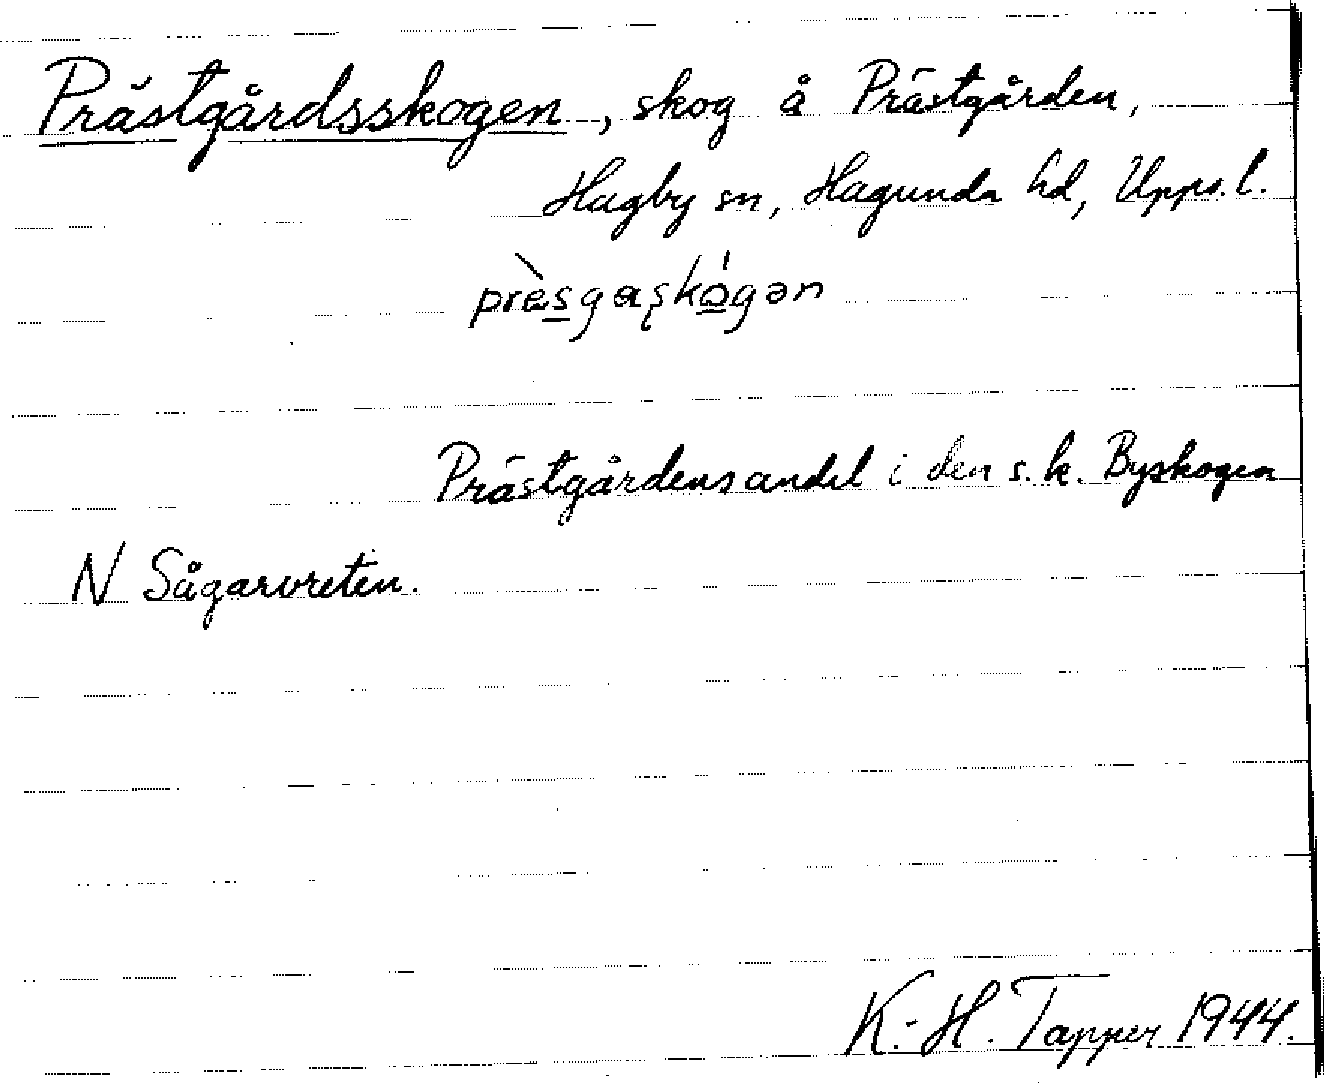 Prästgårdsskogen, skog å Prästgården,
Hagby sn, Hagunda hd, Upps. l.
prèsgaʂkógən
Prästgårdens andel i den s.k. Byskogen
N Sågarvreten.
K.-H. Tapper 1944.